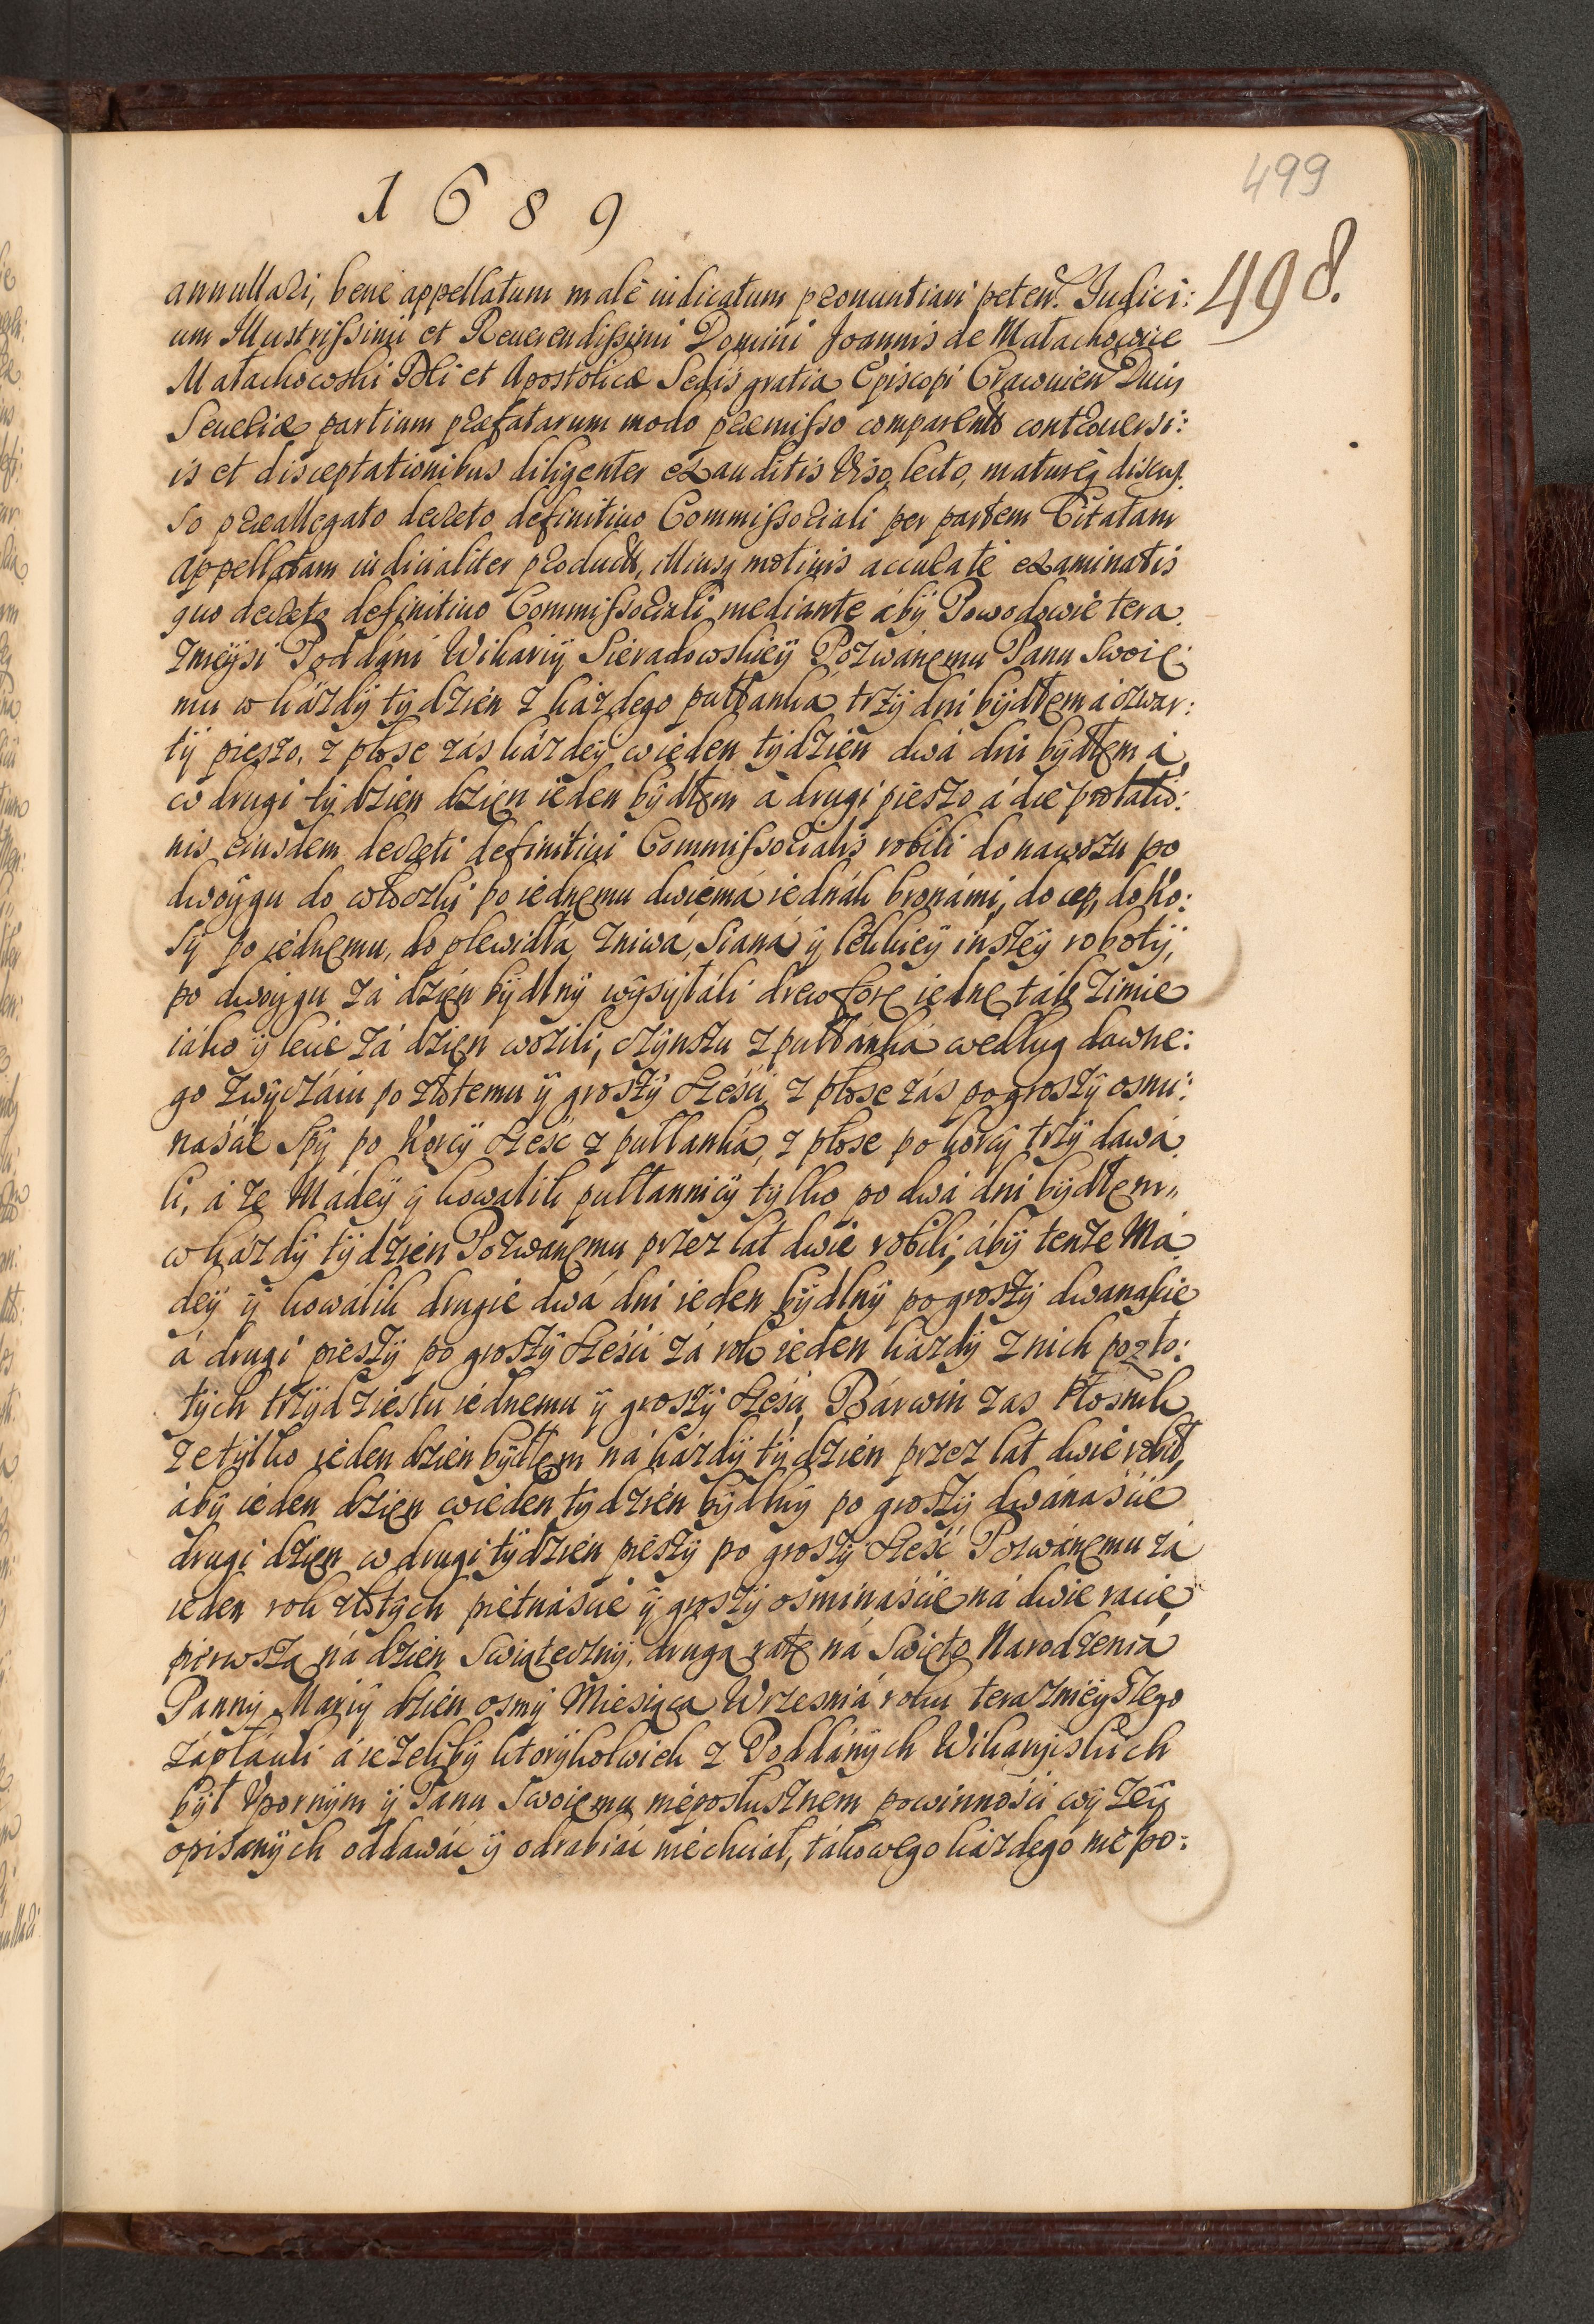 499
1689
498.
annullari, bene appellatum malè iudicatum pronuntiari peten. Judici:
um Illustrissimi et Reuerendissimi Domini Joannis de Małachowice
Małachowski Dei et Apostolicæ Sedis gratia Episcopi Cracouien Ducis
Seueriæ partium præfatarum modo præmisso comparen controuersi:
is et disceptationibus diligenter exauditis Viso, lecto, maturèq discus.
so præallegato decreto definitiuo Commissoriali per partem Citatam
Appellatam iudicialiter product, illiusq motiuis accuratè examinatis
quo decreto definitiuo Commissoriali mediante áby Powodowie tera.
znieÿsi Poddáni Wikariÿ Sieradowskieÿ Pozwánemu Panu Swoie:
mu w káżdÿ tÿdzień z káżdego pułłanká trzÿ dni bÿdłem á czwar:
tÿ pieszo, z płose zás káżdeÿ w ieden tÿdzień dwá dni bÿdłem á
w drugi tÿdzień dzień ieden bÿdłem á drugi pieszo á die prolatio:
nis eiusdem decreti definitiui Commissorialis robili do nawozu po
dwoÿgu do włoczki po iednemu dwiemá iednák bronámi, do cep, do ko:
sÿ po iednemu, do plewidłá, żniwá, Sianá ÿ lekkieÿ inszeÿ robotÿ,
po dwoÿgu zá dzień bÿdlnÿ wÿsÿłáli drew forę iednę ták zimie
iáko ÿ lecie zá dzień wozili, czÿnszu z pułłánká według dawne:
go zwÿczáiu po złotemu ÿ groszÿ sześci, z płose zás po groszÿ osmi:
naśćie Spÿ po korcÿ sześć z pułłanká, z płose po korcÿ trzÿ dawá.
li, á że Mádeÿ ÿ kowalik pułłannicÿ tÿlko po dwá dni bÿdłem
w káżdÿ tÿdzień Pozwanemu przez lat dwie robili, ábÿ tenże Má.
deÿ ÿ kowálik drugie dwá dni ieden bÿdlnÿ po groszÿ dwanaście
á drugi pieszÿ po groszÿ sześci zá rok ieden káżdÿ z nich po zło:
tÿch trzÿdziestu iednemu ÿ groszÿ sześci, Bárwin zas Płośnik
że tÿlko ieden dzień bÿdłem ná káżdÿ tÿdzień przez lat dwie robił,
ábÿ ieden dzień w ieden tÿdzień bÿdlnÿ po groszÿ dwánaście
drugi dzień w drugi tÿdzień pieszÿ po groszÿ sześć Pozwánemu zá
ieden rok złotÿch piętnáście ÿ groszÿ osmináście ná dwie racie
pierwszą ná dzień Swiątecznÿ, drugą ratę ná Swięto Narodzenia
Pannÿ Mariÿ dzień osmÿ Miesiąca Wrzesniá roku teraznieÿszego
zápłácili á ieżelibÿ ktorÿkolwiek z Poddánÿch Wikarÿiskich
bÿł Vpornÿm ÿ Panu Swoiemu nieposłusznem powinności wÿżeÿ
opisanÿch oddawáć ÿ odrabiáć niechciał, tákowego káżdego nie po: